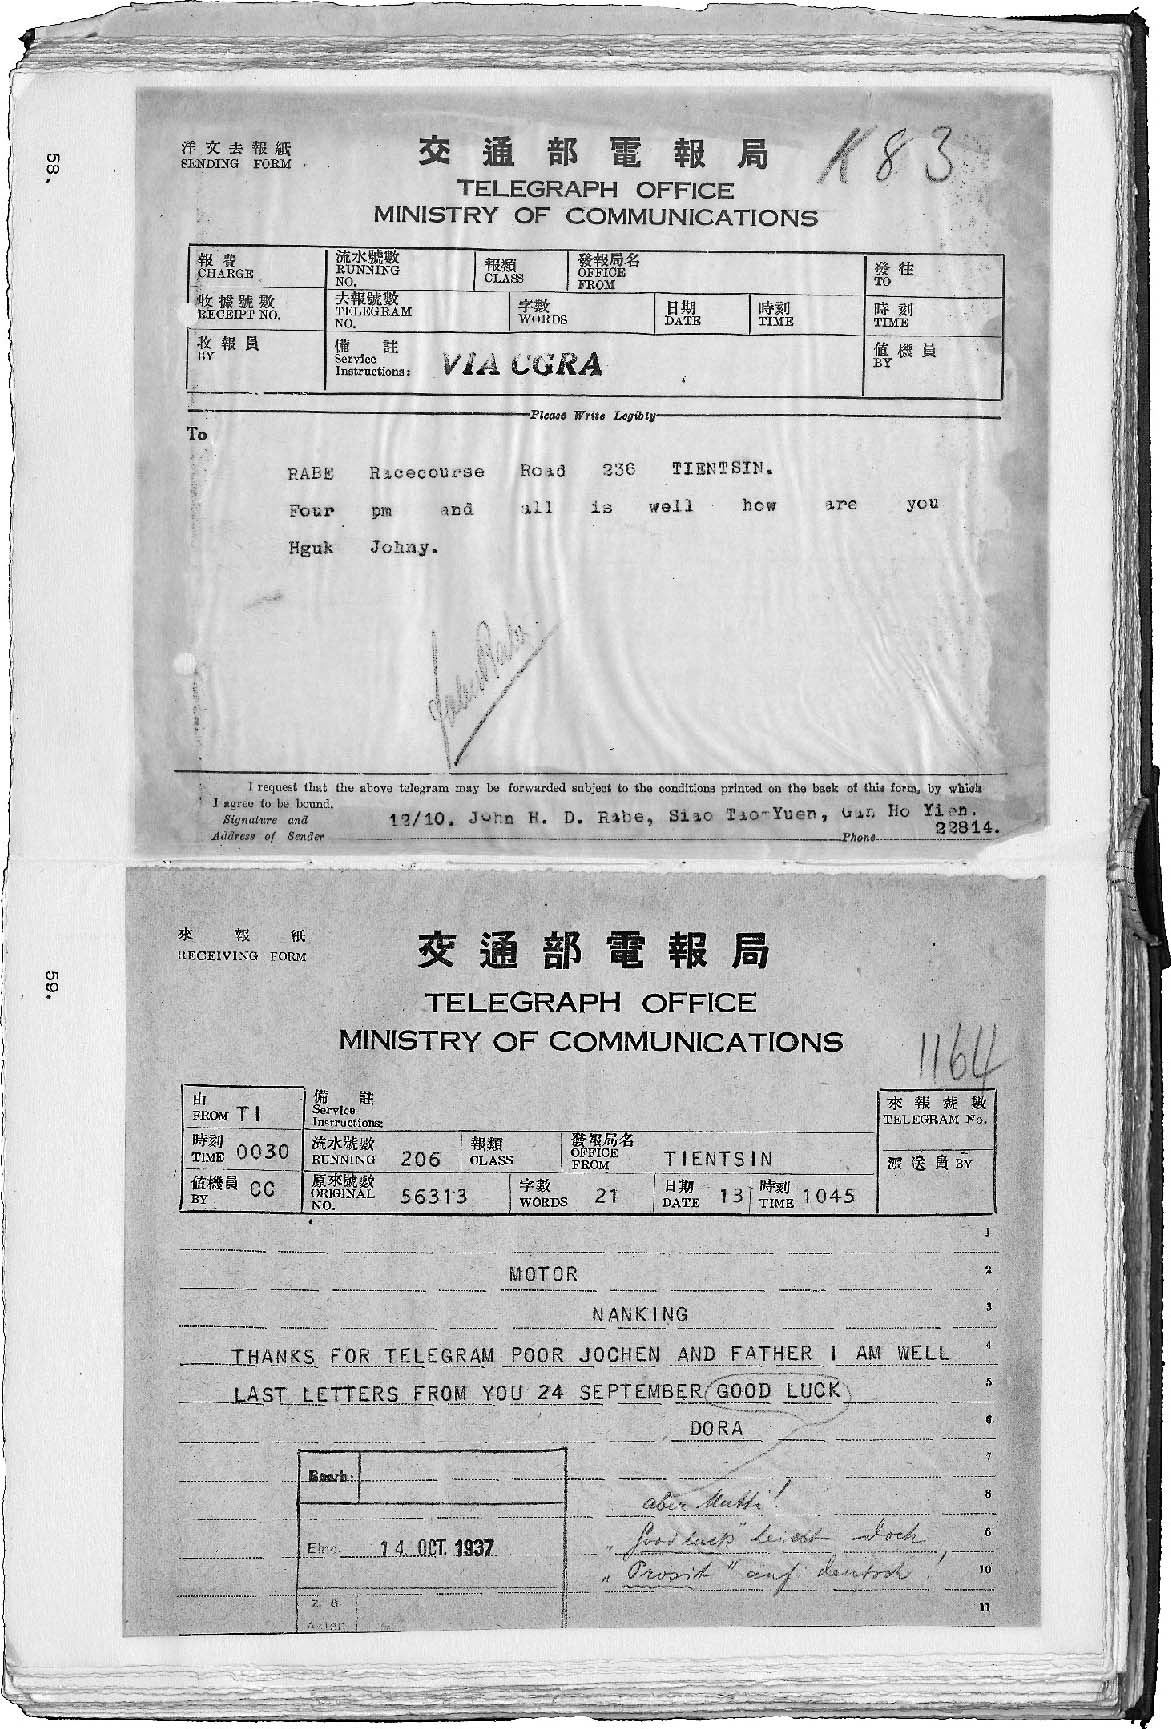 58.
洋文去報紙
SENDING FORM
交通部電報局
K 83
TELEGRAPH OFFICE
MINISTRY OF COMMUNICATIONS
報費
CHARGE
流水號數
RUNNING
NO.
報類
CLASS
發報局名
OFFICE
FROM
發往
TO
收據號數
RECEIPT NO.
去報號數
TELEGRAM
NO.
字數
WORDS
日期
DATE
時刻
TIME
時刻
TIME
收報員
BY
備註
Service
Instructions:
VIA CGRA
值機員
BY
Please Write Legibly
To
RABE Racecourse Road 236 TIENTSIN.
Four pm and all is well how are you
Hguk Johny.
John Rabe.
I request that the above telegram may be forwarded subject to the conditions printed on the back of this form, by which
I agree to be bound.
Signature and
Address of Sender
12/10. John H. D. Rabe, Siao Tao-Yuen, Gan Ho Yien.
Phone 22814.
59.
來報紙
RECEIVING FORM
交通部電報局
TELEGRAPH OFFICE
MINISTRY OF COMMUNICATIONS
1164
由
FROM TI
備註
Service
Instructions:
來報號數
TELEGRAM No.
時刻
TIME 0030
流水號數
RUNNING 206
報類
CLASS
發報局名
OFFICE
FROM TIENTSIN
派送員 BY
值機員
BY CC
原來號數
ORIGINAL
NO. 56313
字數
WORDS 21
日期
DATE 13
時刻
TIME 1045
1
MOTOR 2
NANKING 3
THANKS FOR TELEGRAM POOR JOCHEN AND FATHER I AM WELL 4
LAST LETTERS FROM YOU 24 SEPTEMBER GOOD LUCK 5
DORA 6
7
Bearb.
aber Mutti! 8
Eing. 14. OCT. 1937
"Good luck" heisst doch 6
"Prosit" auf deutsch! 10
z. d.
Akten
11